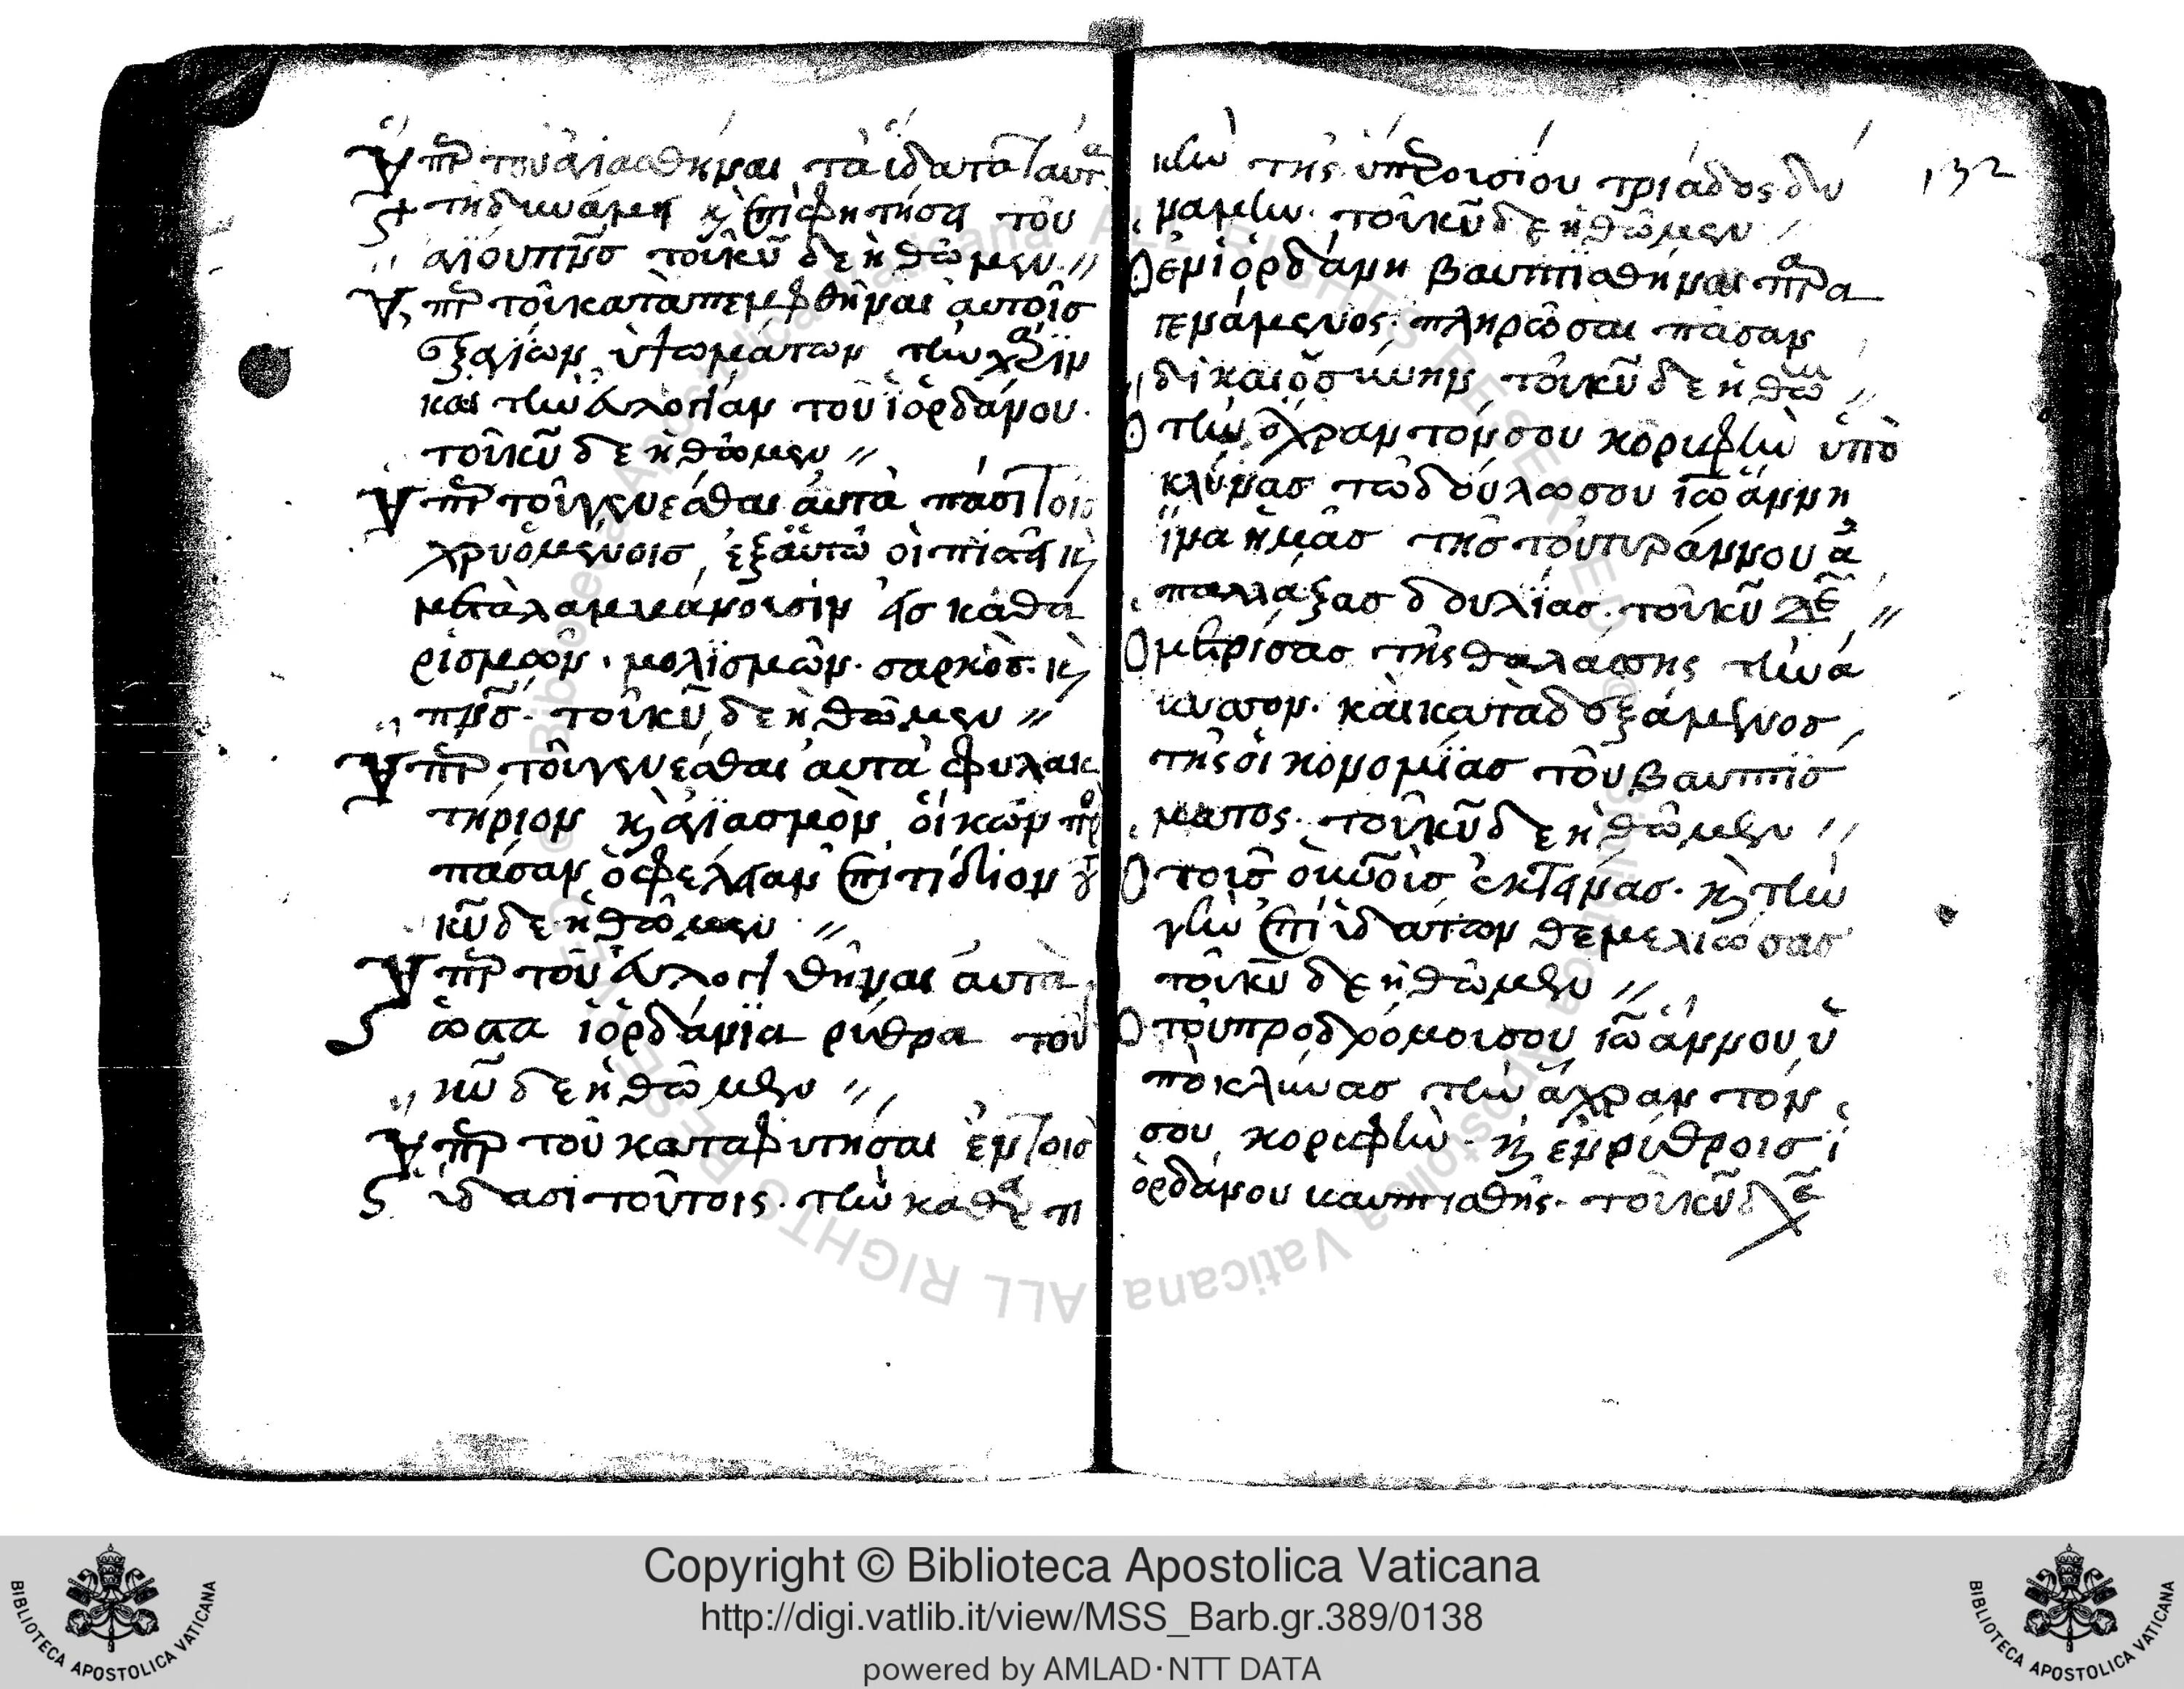 Ὑπὲρ τοῦ ἁγιασθῆναι τὰ ὕδατα ταῦτα
τῆ δυνάμει κ(αὶ) ἐπιφητήσει τοῦ
ἁγίου πν(εύματο)σ τοῦ κῦ δεηθῶμεν //
Ὑπὲρ τοῦ καταπεμφθῆναι αὐτοῖσ
καὶ τὴν εὐλογίαν τοῦ ἰορδάνου.
τοῦ κῦ δεηθῶμεν //
Ὑπὲρ τοῦ γενέσθαι αὐτὰ πάσι τοῖς
ρισμὸν · μολϊσμῶν · σαρκὸσ · κ(αὶ)
πνσ · τοῦ κῦ δεηθῶμεν //
Ὑπὲρ τοῦ γενέσθαι αὐτὰ φυλακ
τήριον κ(αὶ) ἁγϊασμὸν οἴκων πρ
πάσαν ὀφέλειαν ἐπιτίδιον τ
κῦ δεηθῶμεν //
Ὑπὲρ τοῦ εὐλογηθῆναι αὐτὰ
ὥσπερ ἰορδάνϊα ρύθρα τοῦ
κῦ δεηθῶμεν //
Ὑπὲρ τοῦ καταφυτῆσαι ἐν τοῖσ
ὕδασι τούτοις · τὴν καθαρτι
κὴν τῆς ὑπερουσίου τριάδος δύ
ναμιν · τοῦ κῦ δεηθῶμεν /
132
Ὁ ἐν ἰορδάνη βαπτισθῆναι
πληρῶσαι πάσαν
δικαιοσύνην, τοῦ κῦ δεηθῶ //
Ὁ τὴν ἄχραντόν σου κορυφὴν ὑπὸ
κλύνας τῶ δούλωσου ἰῶάννη
ἵνα ἡμᾶσ τῆσ τοῦ τυράννου ἀ
παλλάξασ δουλίασ · τοῦ κῦ δε //
Ὁ μετρίσασ τῆς θαλάσσης τὴν ἄ
βυσσον · καὶ καταδεξάμενοσ
τῆς οἰκονομίασ τοῦ βαπτίσ
ματος · τοῦ κῦ δεηθῶμεν //
Ὁ τοὺσ οὐνοὺσ ἐκτείνασ · κ(αὶ) τὴν
γῆν ἐπὶ ὑδάτων θεμελιώσασ
τοῦ κῦ δεηθῶμεν //
Ὁ τοῦ προδρόμου σου ἰῶάννου ὑ
ποκλίνασ τὴν ἄχραντόν
σου κορυφὴν · κ(αὶ) ἐν ρύθροισ ἰ
ορδάνου βαπτισθῆς · τοῦ κῦ δε
Copyright © Biblioteca Apostolica Vaticana
http://digi.vatlib.it/view/MSS_Barb.gr.389/0138
powered by AMLAD·NTT DATA
BIBLIOTECA APOSTOLICA VATICANA
BIBLIOTECA APOSTOLICA VATICANA